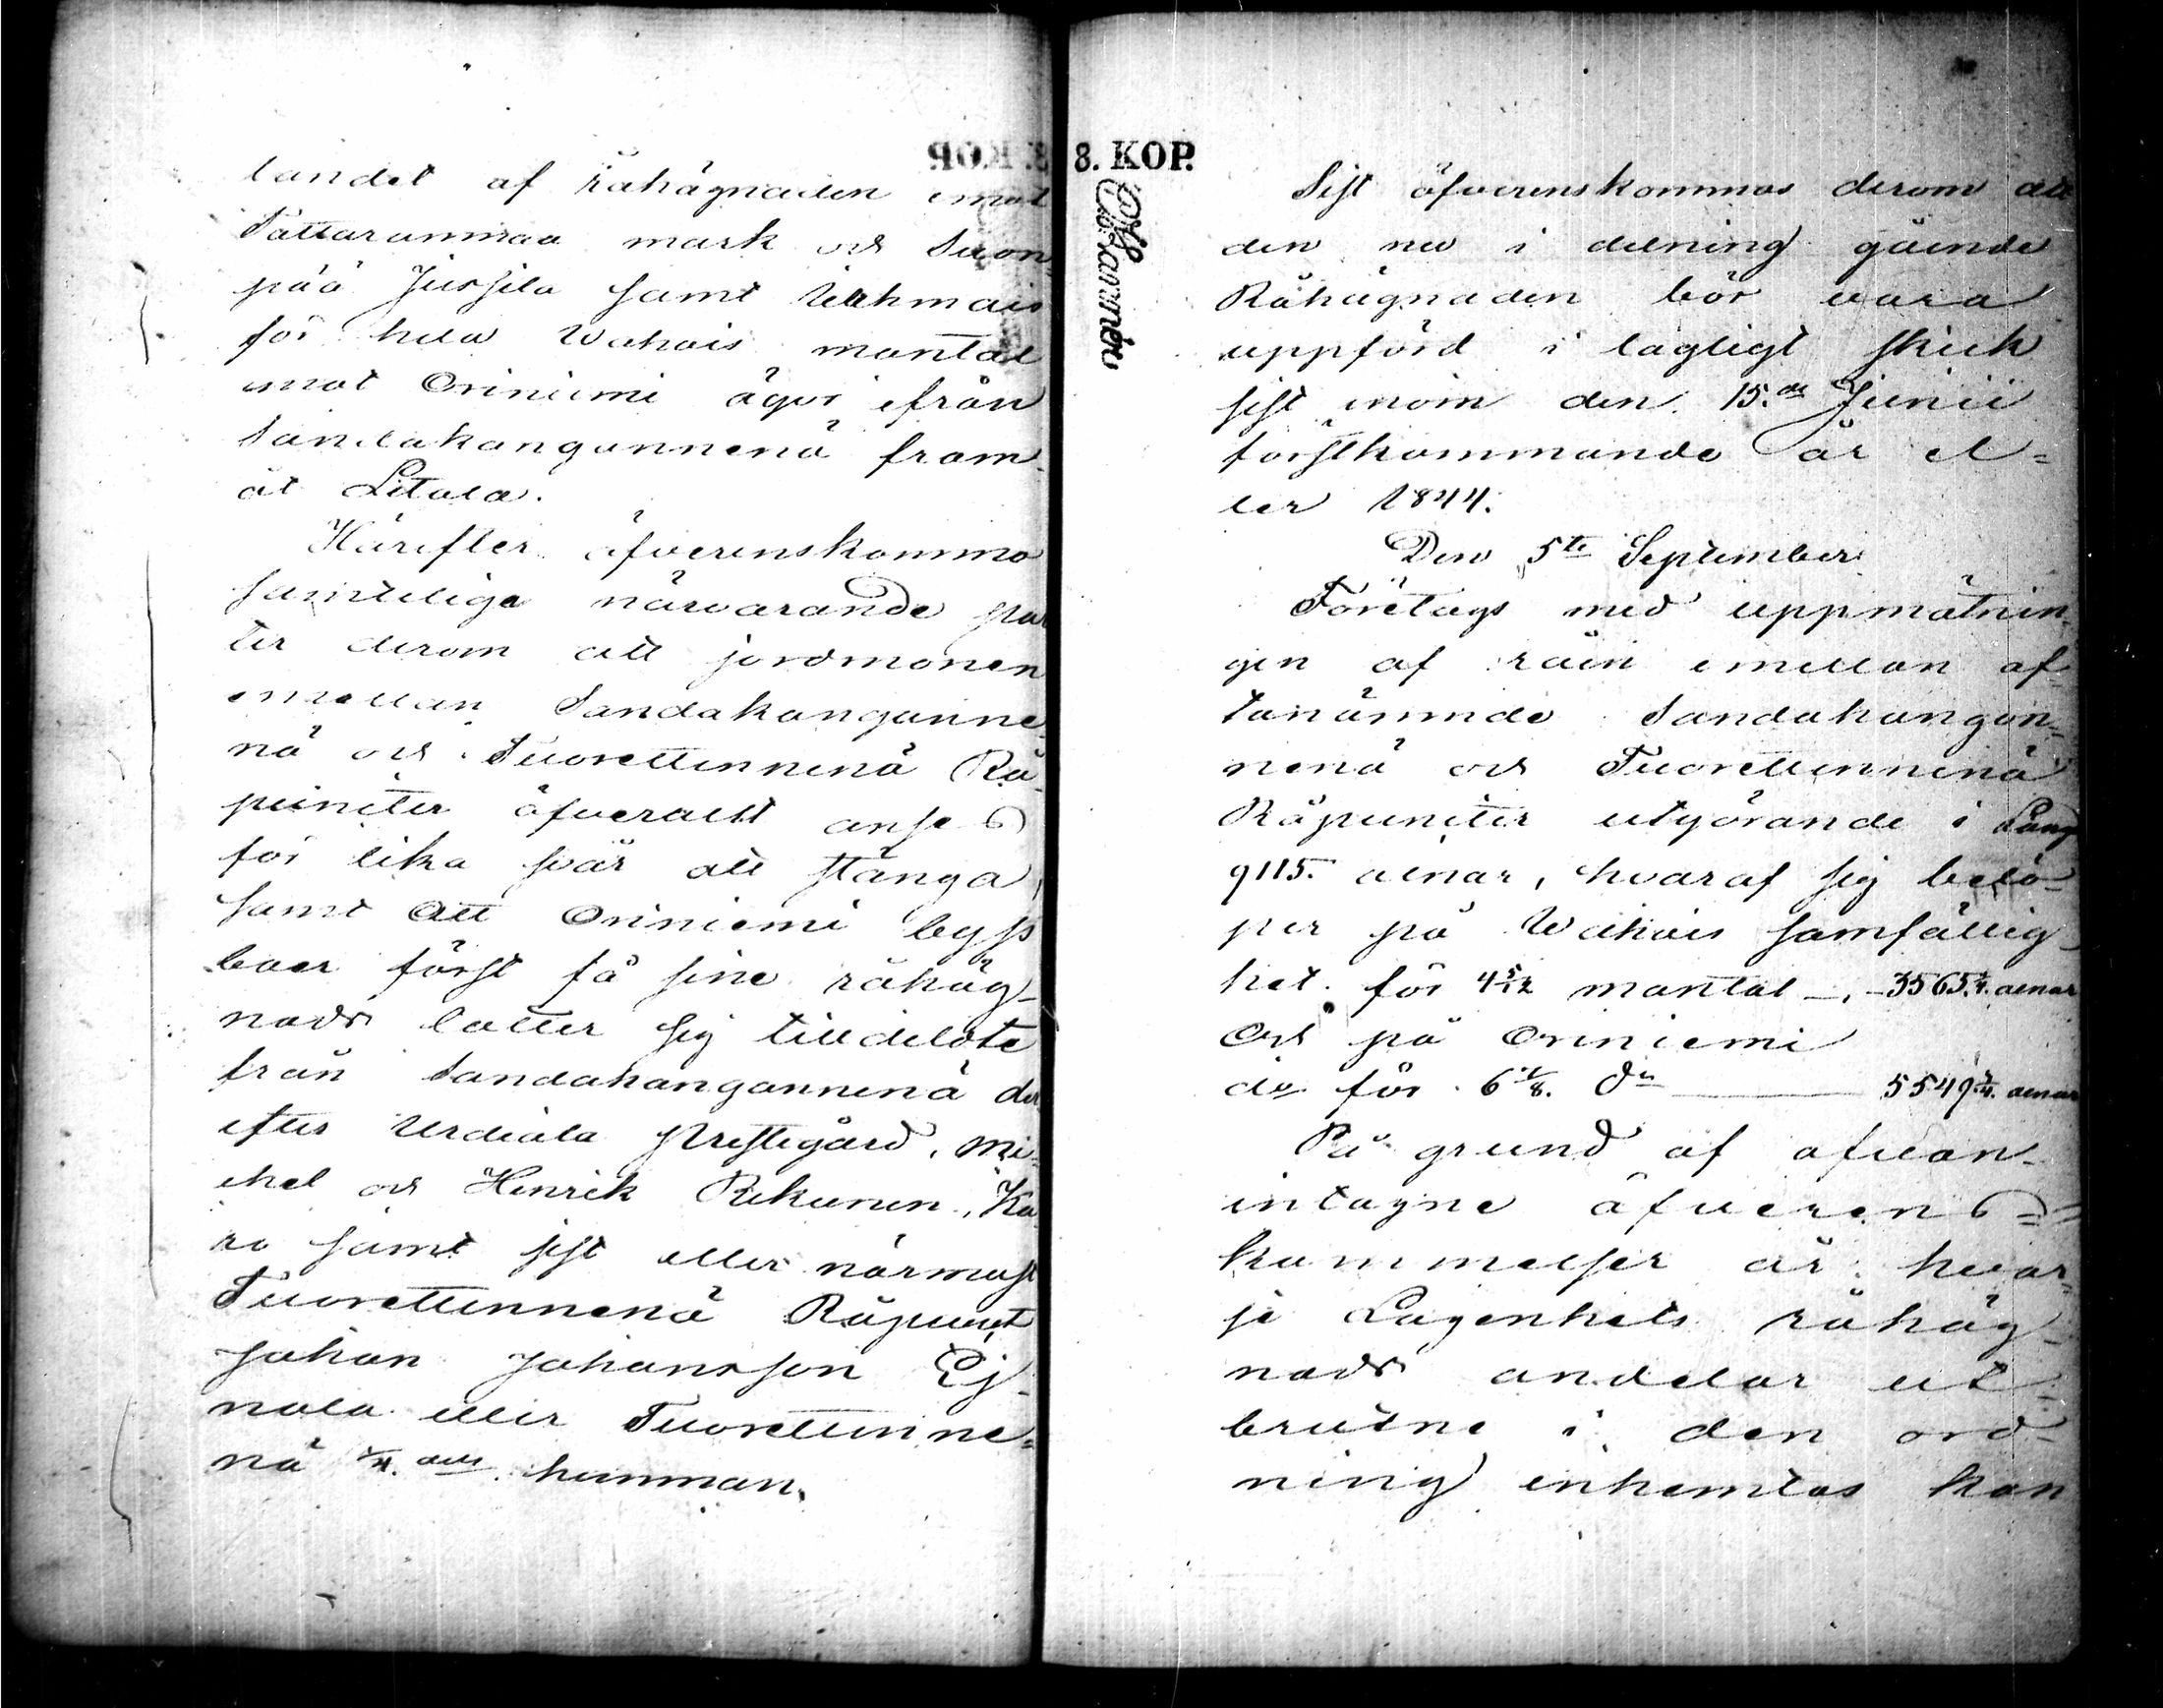 landet af råhägnaden emot
Tattarunmaa mark och Suon-
pää Jussila samt Urhmais
för hela Wahais mantal
emot Oriniemi ägor ifrån
Sandakangannenä fram-
åt Litula.
Härefter öfverenskommo
samteliga närvarande par
ter derom att jordmonen
emellan Sandakanganne
nä och Tuorettennenä Rå-
puncter öfveralt anses
för lika svår att stänga,
samt att Oriniemi byss
boer först få sine råhäg-
nads lotter sig tilldelste
från Sandakangannenä der
efter Urdiala Prestegård, Mi-
chel och Henrik Rekunen, Ka
ro samt sist eller närmast
Tuorettennenä Råpunct
Johan Johansson Ej-
nola eller Tuorettenne-
nä hemman.
8. KOP.
Sist öfverenskommos derom att
den nu i delning gående
Råhägnaden bör vara
uppförd i lagligt skick
sist inom den 15.de Junii
förstkommande år el=
ler 1844.
Den 5te September
Företags med uppmätnin
gen af råen emellan of-
tanämnde Sandakangan-
nenä och Tuorettennenä
Råpuncter utgörande i Längd
9115. alnar, hvaraf sig belö-
per på Wahais samfällig-
het för 4 5/12 mantal - 3565 1/4. alnar
Och på Oriniemi
do för 6 7/8. do — 5549 3/4. alnar
På grund af ofvan-
intagne öfverens=
kommelser är hvar-
je Lägenhets råhäg-
nads andelar ut-
brutne i den ord-
ning inhemtas kan